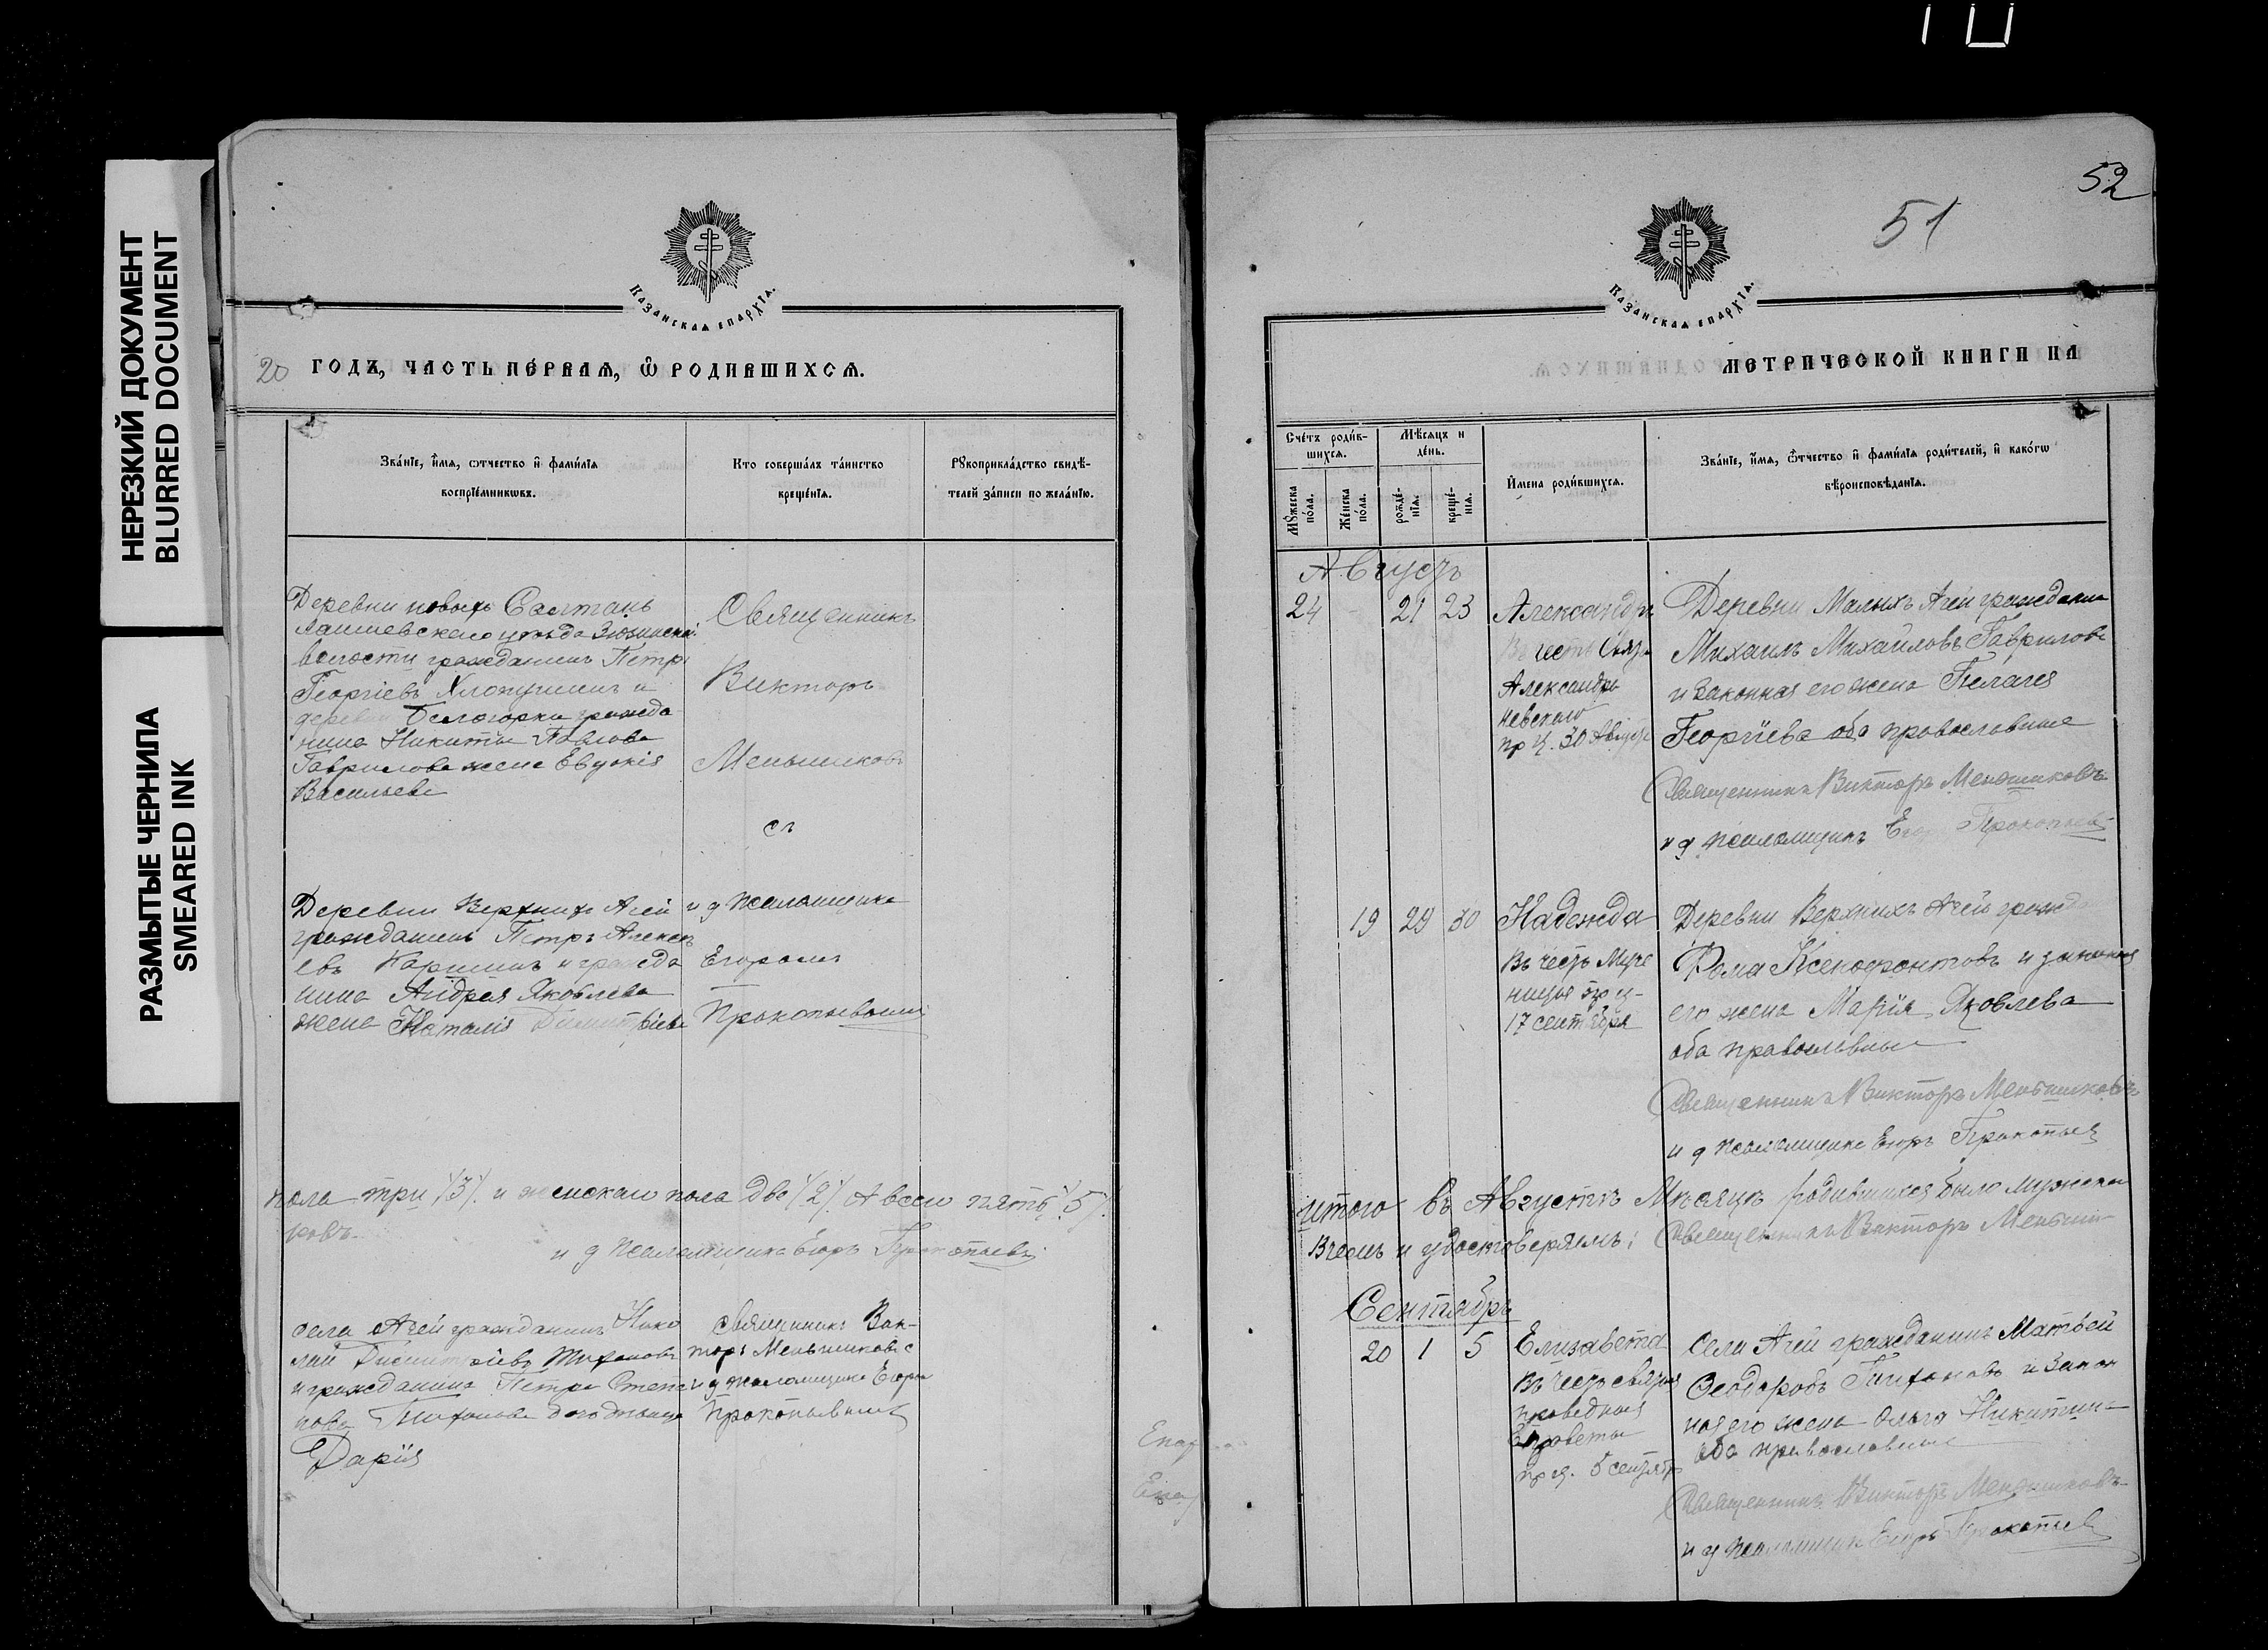 НЕРЕЗКИЙ ДОКУМЕНТ
BLURRED DOCUMENT
РАЗМЫТЫЕ ЧЕРНИЛА
SMEARED INK
Казанская епархїа.
20 годъ, часть пе́рвая, ѡ родившихся.
Зва́нїе, и҆́мя, ѻтчество и҆ фами́лїя
воспрїе́мникωвъ.
Кто соверша́лъ та́инство
креще́нїя.
Рꙋкоприкла́дство свидѣ́-
телей за́писи по жела́нїю.
Деревни новыхъ Салтанъ
Лаишевскаго уѣзда Зюзинской
волости гражданинъ Петръ
Георгіевъ Хлопушинъ и
деревни Белогорки гражда
нина Никиты Павлова
Гаврилова жена Евдокія
Васильева
Священникъ
Викторъ
Меньшиковъ
съ
Деревни Верхнихъ Агей
гражданинъ Петръ Алексѣ
евъ Каршинъ и гражда
нина Андрея Яковлева
жена Наталія Димитріева
и д псаломщика
Егоромъ
Прокопьевымъ
пола три /3/. и женскаго пола две /2/. А всего пять /5/.
ковъ.
и д псаломщика Егоръ Прокопьевъ
села Агей гражданинъ Нико
лай Димитріевъ Тихоновъ
и гражданина Петра Степа
нова Тихонова дочь дѣвица
Дарія
Священникъ Вик-
торъ Меньшиковъ с
и д псаломщика Егоро
Прокопьевымъ
52
51
Казанская епархїа.
Метрической книги на
Сче́тъ роди́в-
шихся.
Мѣ́сяцъ и
де́нь.
Мꙋ́жеска
по́ла.
Же́нска
по́ла.
рожде́-
нїя.
креще́-
нїя.
И҆мена роди́вшихся.
Зва́нїе, и҆́мя, ѻ҆́тчество и҆ фами́лїя роди́телей, и҆ како́гω
вѣроисповѣ́данїя.
Августъ
24 - 21 23 Александръ
Въ честь Свята
Александра
Невскаго
пр ц. 30 Августа
Деревни Малыхъ Агей гражданин
Михаилъ Михайловъ Гаврилов
и законная его жена Пелагея
Георгіева оба православные
Священникъ Викторъ Меньшиковъ
и д псаломщикъ Егоръ Прокопьев
19 29 30 Надежда
Въ честь Муче
ницы пр ц-
17 сентября
Деревни Верхнихъ Агей гражд
Фома Ксенофонтовъ и законная
его жена Марія Яковлева
оба православные
Священникъ Викторъ Меньшиковъ
и д псаломщика Егоръ Прокопьев
итого въ Августѣ Мѣсяцѣ родившихся было мужска
В чемъ и удостоверяемъ: Священникъ Викторъ Меньши
Сентябръ
20 1 5 Елизавета
Въ честь святыя
праведныя
Елизаветы
пр ц. 5 сентябр
Села Агей гражданинъ Матвей
Феодоровъ Тихоновъ и Закон
ная его жена Ольга Никитина
оба православные
Священникъ Викторъ Меньшиковъ
и д псаломщик Егоръ Прокопьев